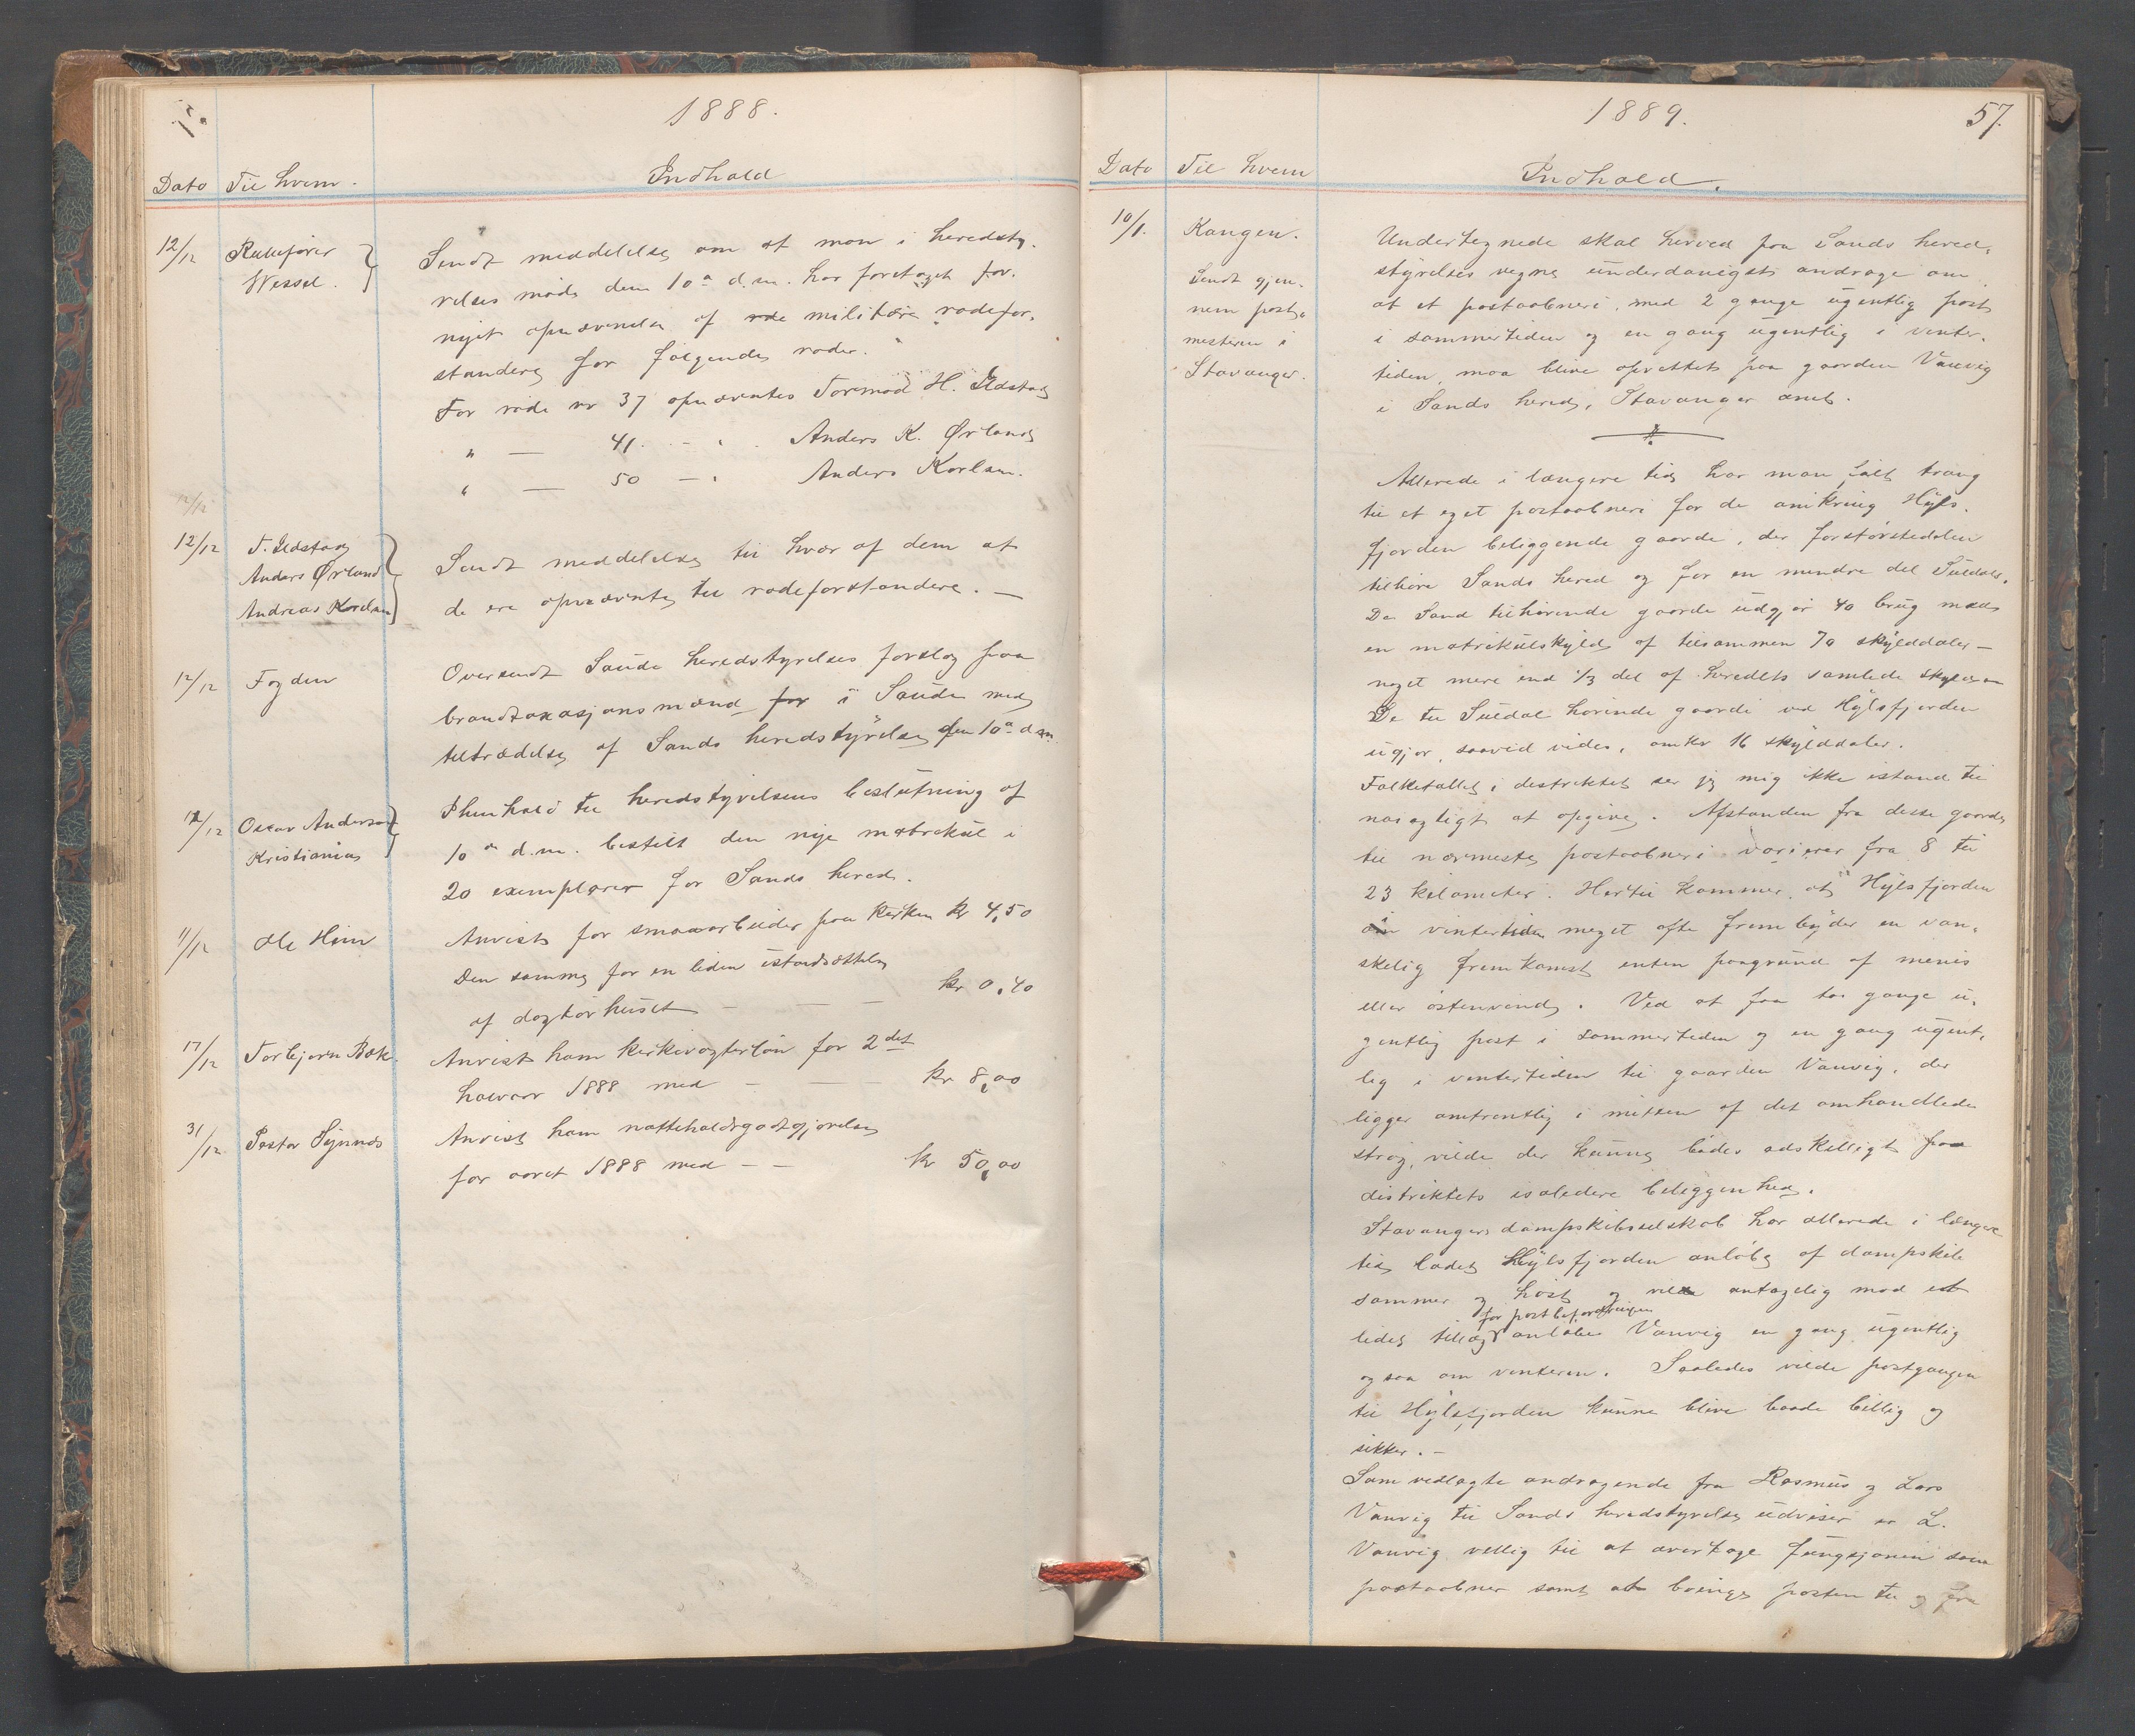 1888.
Dato Til hvem. Indhold
12/12 Rulleförer Wessel. Sendt meddelelse om at man i heredsty-
relses möde den 10de d.m. har foretaget for-
nyet opnævnelse af militære rodefor-
standere for fölgende roder.
For rode nr 37 opnævntes Tormod H. Ilstad
" — 41. - " Anders K. Ørland
" — 50 - " Anders Korlan.
12/12
12/12 T. Ilstad
Anders Ørland
Andreas Korlan
Sendt meddelelse til hver af dem at
de ere opnævnte til rodeforstandere. —
12/12 Fogden Oversendt Saude heredstyrelses forslag paa
brandtaxasjonsmænd for i Saude med
tiltrædelse af Sands heredstyrelse den 10de d.m.
12/12 Oscar Anderson
Kristiania
I henhold til heredstyrelsens beslutning af
10de d.m. bestilt den nye matrikul i
20 exemplarer for Sands hered.
11/12 Ole Heim Anvist for smaaarbeider paa kirken kr 4,50
Den samme for en liden istandsættelse
af dogtorhuset — — — kr 0,40
17/12 Torbjørn Bæk. Anvist ham kirkevogterlön for 2det
halvaar 1888 med — — kr 8,00
31/12 Pastor Synnes Anvist ham natteholdsgodtgjørelse
for aaret 1888 med — — kr 50,00
1889. 57.
Dato Til hvem Indhold.
10/1. Kongen.
Sendt gjen-
nem post-
mesteren i
Stavanger.
Undertegnede skal herved paa Sands hered-
styrelses vegne underdanigst andrage om
at et postaabneri, med 2 gange ugentlig post
i sommertiden og en gang ugentlig i vinter-
tiden, maa blive oprettet paa gaarden Vanvig
i Sands hered, Stavanger amt.
Allerede i længere tid har man følt trang
til et eget postaabneri for de omkring Hyls-
fjorden beliggende gaarde, der forstörstedelen
tilhöre Sands hered og for en mindre del Suldals.
De Sand tilhörende gaarde udgjör 40 brug med
en matrikulskyld af tilsammen 70 skylddaler —
noget mere end 1/3 del af heredets samlede skyld
De til Suldal hörende gaarde ved Hylsfjorden
ugjør, saavid vides, omkr 16 skylddaler.
Folketallet i destriktet ser jeg mig ikke istand til
nöiagtigt at opgive. Afstanden fra disse gaarde
til nærmeste postaabneri varierer fra 8 til
23 kilometer. Hertil kommer, at Hylsfjorden
i vintertiden meget ofte frembyder en van-
skelig fremkomst enten paagrund af menis
eller östenvind. Ved at faa to gange u-
gentlig post i sommertiden og en gang ugent-
lig i vintertiden til gaarden Vanvig, der
ligger omtrentlig i midten af det omhandlede
strög, vilde der kunne bödes adskelligt paa
distriktets isoledere beliggenhed.
Stavangers dampskibsselskab har allerede i længere
tid ladet Hylsfjorden anlöbe af dampskib
sommer og höst og vil antagelig mod et
for postbefordringen
lidet tillæg anlöbe Vanvig en gang ugentlig
ogsaa om vinteren. Saaledes vilde postgangen
til Hylsfjorden kunne blive baade billig og
sikker. —
Som vedlagte andragende fra Rasmus og Lars
Vanvig til Sands heredstyrelse udviser er L.
Vanvig villig til at overtage fungsjonen som
postaabner samt at bringe posten til og fra